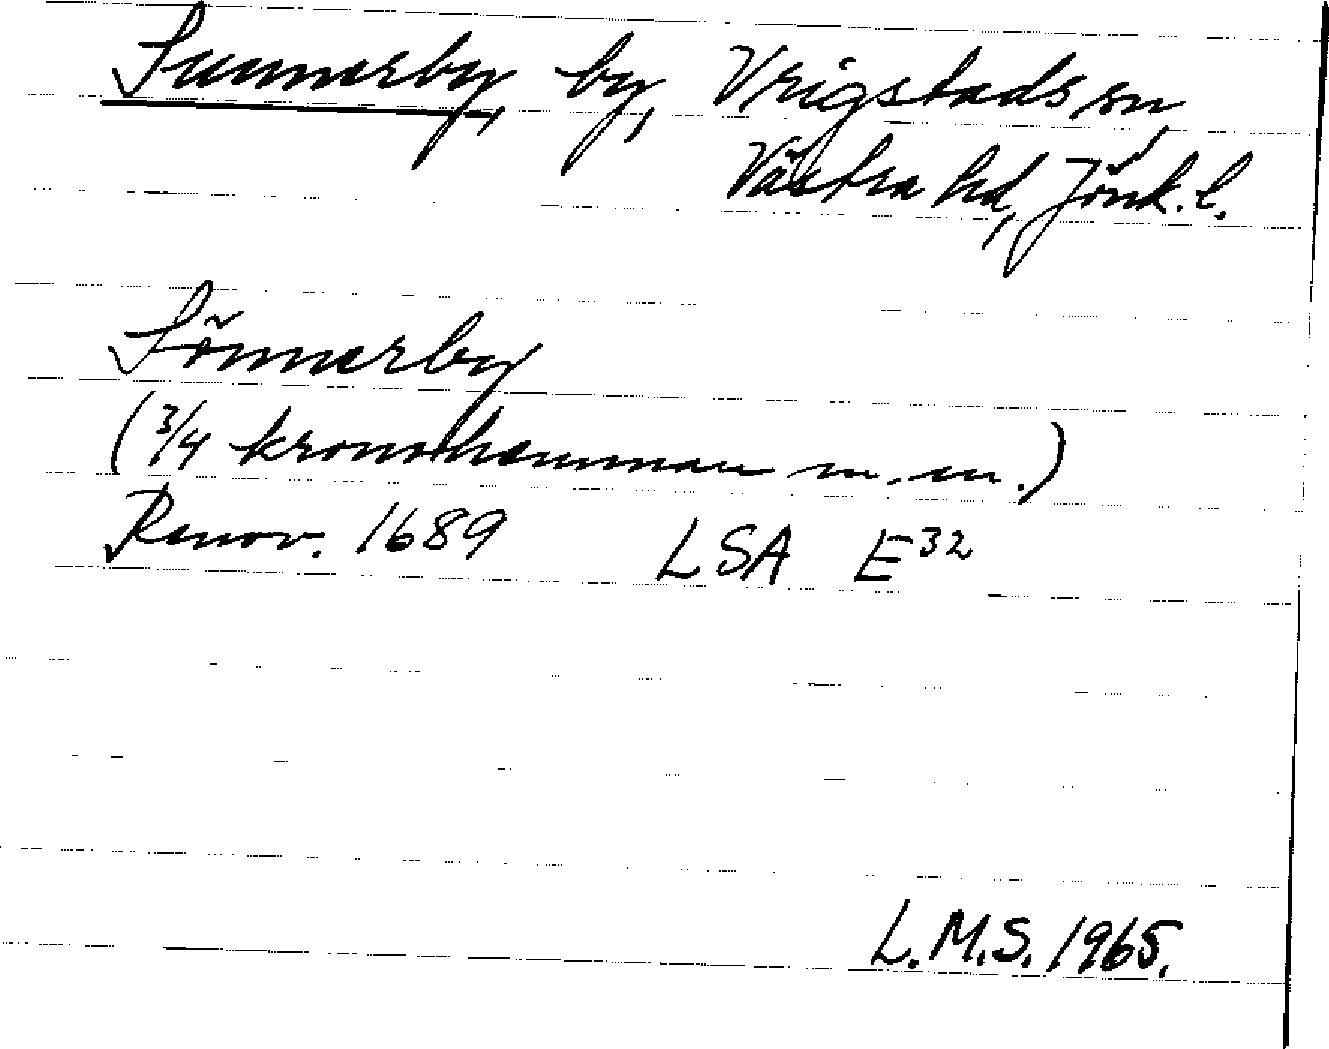 Sunnerby, by, Vrigstads sn,
Västra hd, Jönk. l.
Sönnerby
(3/4 kronohemman m. m.)
Renov. 1689 LSA E32
L.M.S. 1965.